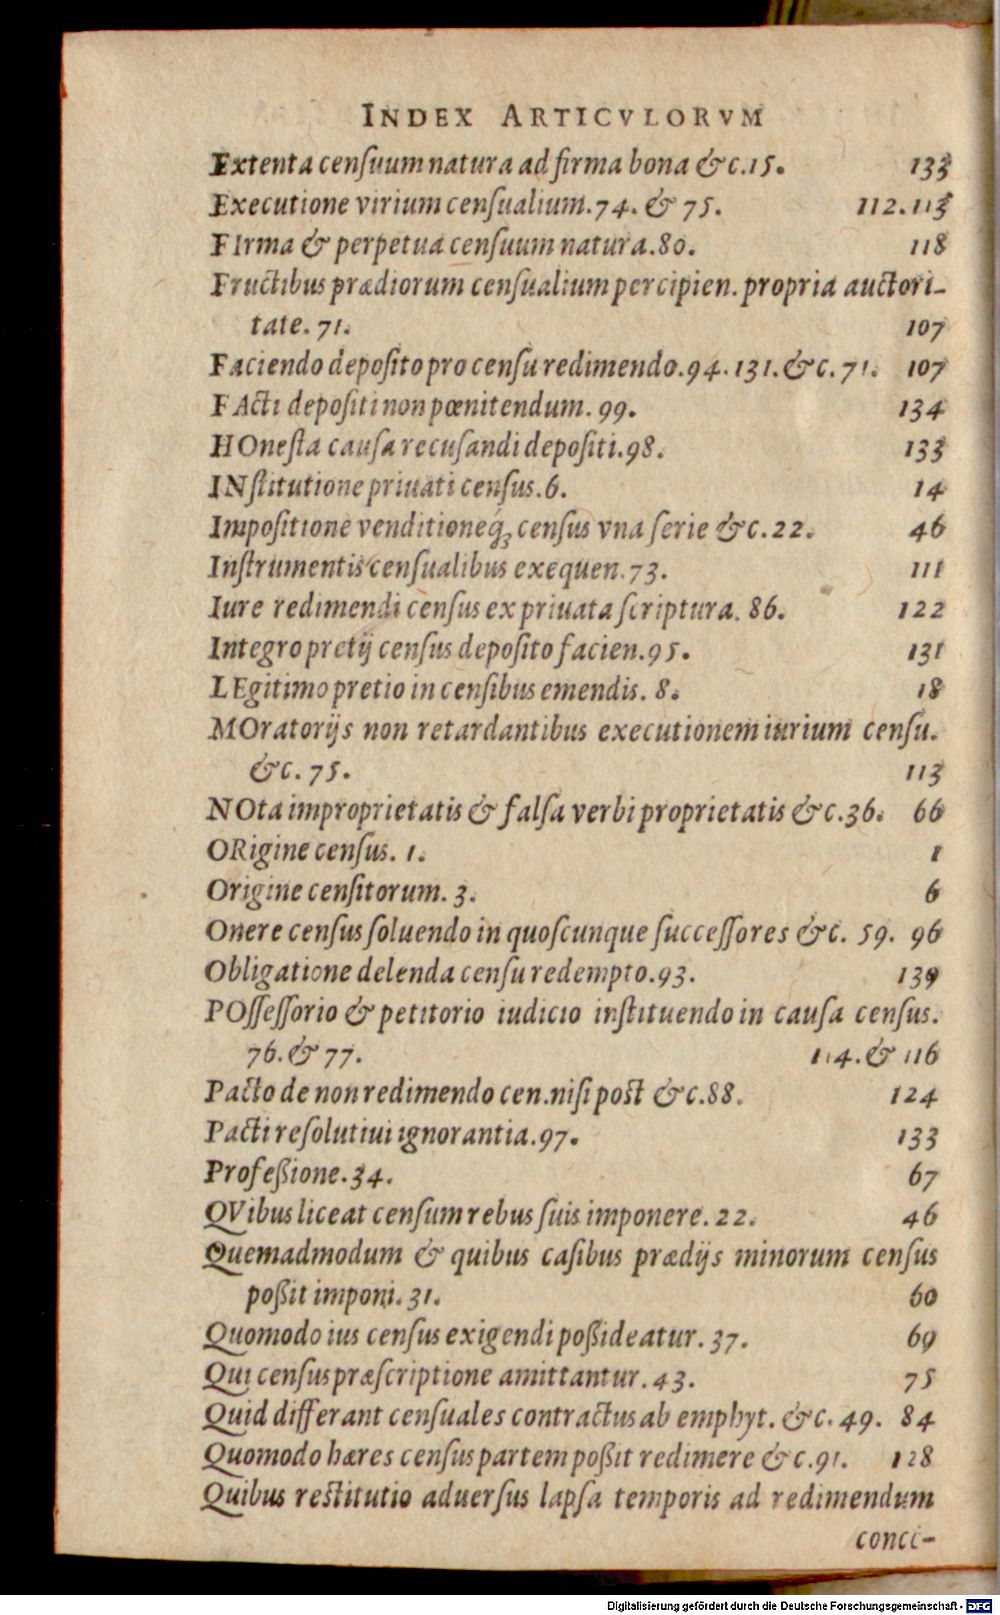 INDEX ARTICVLORVM
Extenta censuum natura ad firma bona &c.15. 133
Executione virium censualium.74. & 75. 112.113
FIrma & perpetua censuum natura.80. 118
Fructibus prædiorum censualium percipien. propria auctori-
tate. 71. 107
Faciendo deposito pro censu redimendo.94.131.&c.71. 107
FActi depositi non pœnitendum. 99. 134
HOnesta causa recusandi depositi.98. 133
INstitutione priuati census.6. 14
Impositione venditioneq́; census vna serie &c.22. 46
Instrumentis censualibus exequen.73. 111
Iure redimendi census ex priuata scriptura. 86. 122
Integro pretij census deposito facien.95. 131
LEgitimo pretio in censibus emendis. 8. 18
MOratorijs non retardantibus executionem iurium censu.
&c. 75. 113
NOta improprietatis & falsa verbi proprietatis &c.36. 66
ORigine census. 1. 1
Origine censitorum. 3. 6
Onere census soluendo in quoscunque successores &c. 59. 96
Obligatione delenda censu redempto.93. 139
POssessorio & petitorio iudicio instituendo in causa census.
76.& 77. 114.& 116
Pacto de non redimendo cen.nisi post &c.88. 124
Pacti resolutiui ignorantia.97. 133
Profeßione.34. 67
QVibus liceat censum rebus suis imponere. 22. 46
Quemadmodum & quibus casibus prædijs minorum census
poßit imponi. 31. 60
Quomodo ius census exigendi poßideatur. 37. 69
Qui census præscriptione amittantur. 43. 75
Quid differant censuales contractus ab emphyt. &c. 49. 84
Quomodo hæres census partem poßit redimere &c.91. 128
Quibus restitutio aduersus lapsa temporis ad redimendum
conce-
Digitalisierung gefördert durch die Deutsche Forschungsgemeinschaft - DFG